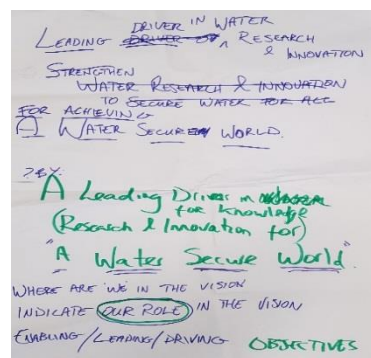 DRIVER IN WATER
LEADING DRIVER OF ^ RESEARCH
& INNOVATION
STRENGTHEN
WATER RESEARCH & INNOVATION
TO SECURE WATER FOR ALL
FOR ACHIEVING
A WATER SECURE WORLD.
A Leading Driver in
for knowledge
(Research & Innovation for)
"A Water Secure World"
WHERE ARE WE IN THE VISION
INDICATE OUR ROLE IN THE VISION
ENABLING/LEADING/DRIVING OBJECTIVES